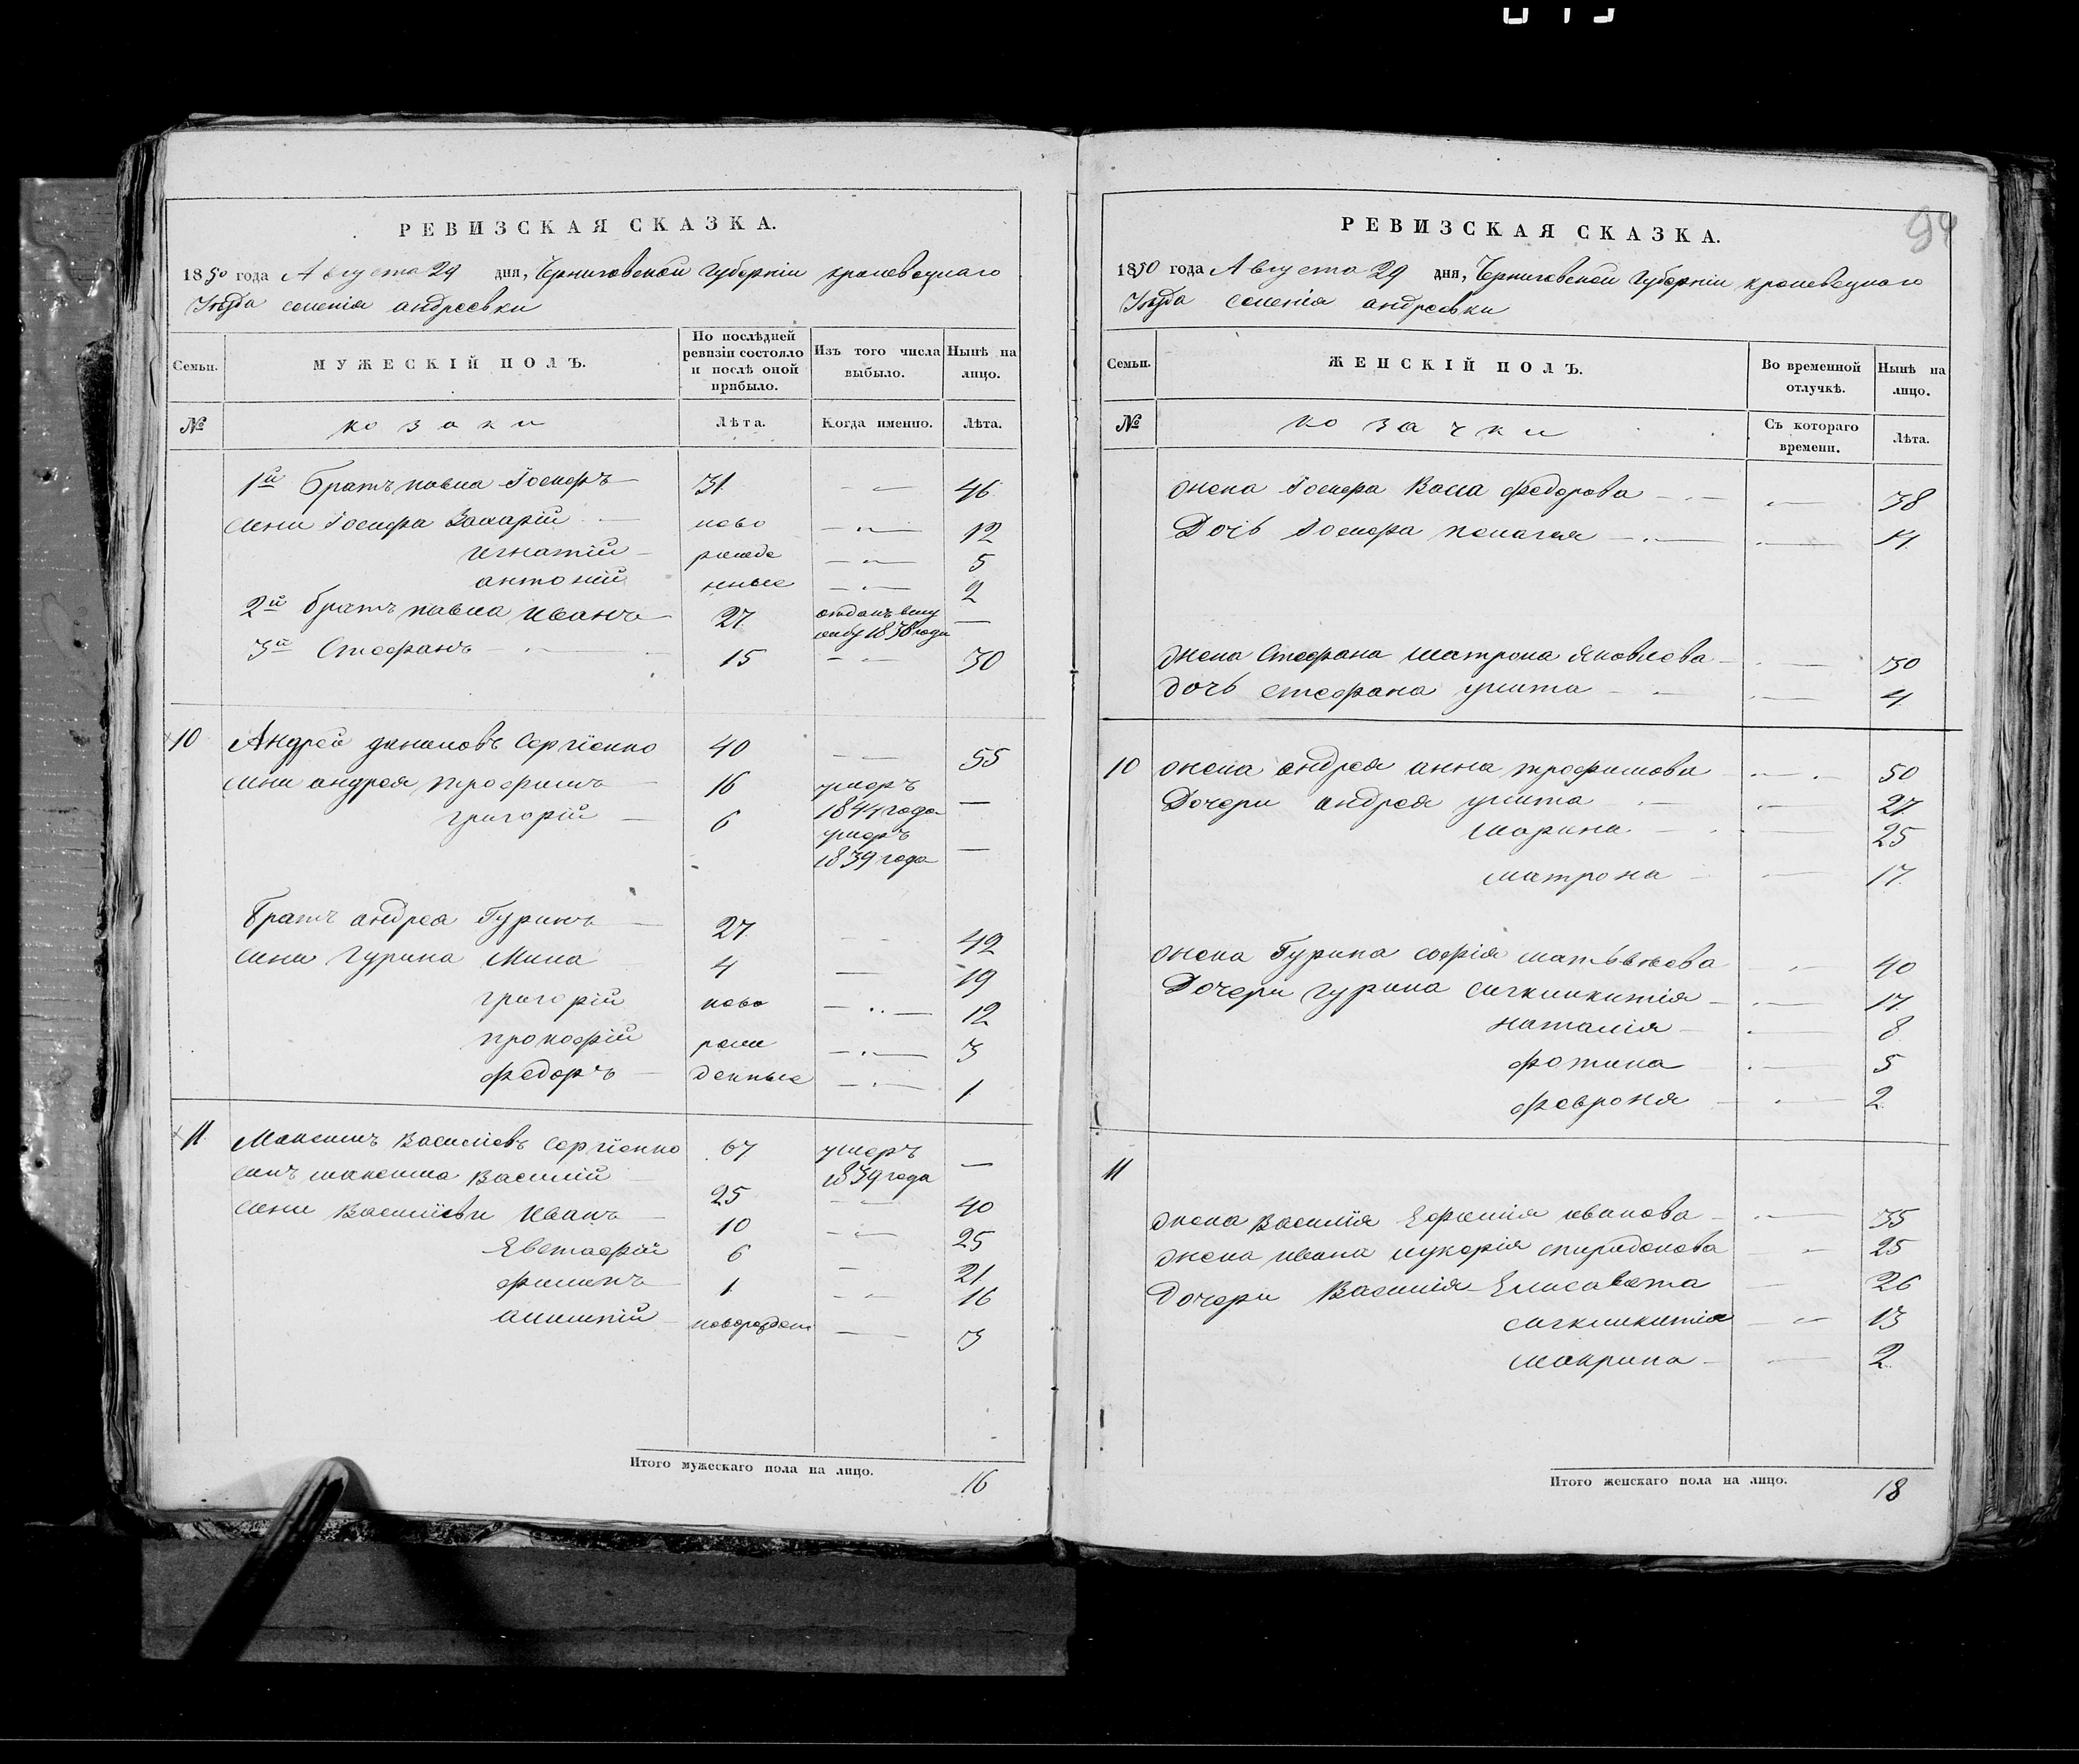 РЕВИЗСКАЯ СКАЗКА.
1850 года Августа 29 дня, Черниговской губерніи кролевецкаго
Уезда селенія андреевки
Семьи.
МУЖЕСКІЙ ПОЛЪ.
По послѣдней ревизіи состояло и послѣ оной прибыло.
Изъ того числа выбыло.
Нынѣ на лицо.
№
козаки
Лѣта.
Когда именно.
Лѣта.
1й Братъ павла Іосифъ 31 46
сины Іосифа Захарій ново 12
игнатій рожде 5
антоній нные 2
2й братъ павла иванъ 27
1838 года
3й Стефанъ 15 30
10 Андрей даниловъ Сергіенко 40 55
сины андрея трофимъ 16 умеръ 1844 года
григорій 6 умеръ 1839 года
Братъ андрея Гуринъ 27 42
сины Гурина Мина 4 19
григорій ново 12
прокофій рож 3
федоръ денные 1
11 Максимъ Василіевъ Сергіенко 67 умеръ 1839 года
синъ максима Василій 25 40
сины Василіеви иванъ 10 25
Евстафій 6 21
филипъ 1 16
алимпій новорожден 3
Итого мужескаго пола на лицо. 16
РЕВИЗСКАЯ СКАЗКА.
94
1850 года Августа 29 дня, Черниговской губерніи кролевецкаго
Уезда селенія андреевки
Семьи.
ЖЕНСКІЙ ПОЛЪ.
Во временной отлучкѣ.
Нынѣ на лицо.
№
козачки
Съ котораго времени.
Лѣта.
жена Іосифа Васса федорова 38
Дочь Іосифа пелагея 14
жена Стефана матрона яковлева 30
дочь стефана улита 4
10 жена андрея анна трофимова 50
Дочери андрея улита 27
марина 25
матрона 17
жена Гурина софія матвѣева 40
Дочери гурина сигклитикія 17
наталія 8
фотина 5
феврония 2
11
жена Василія Ефимія иванова 35
жена ивана лукерія спиридонова 25
Дочери Василія Елисавета 26
сигклитикія 13
макрина 2
Итого женскаго пола на лицо. 18